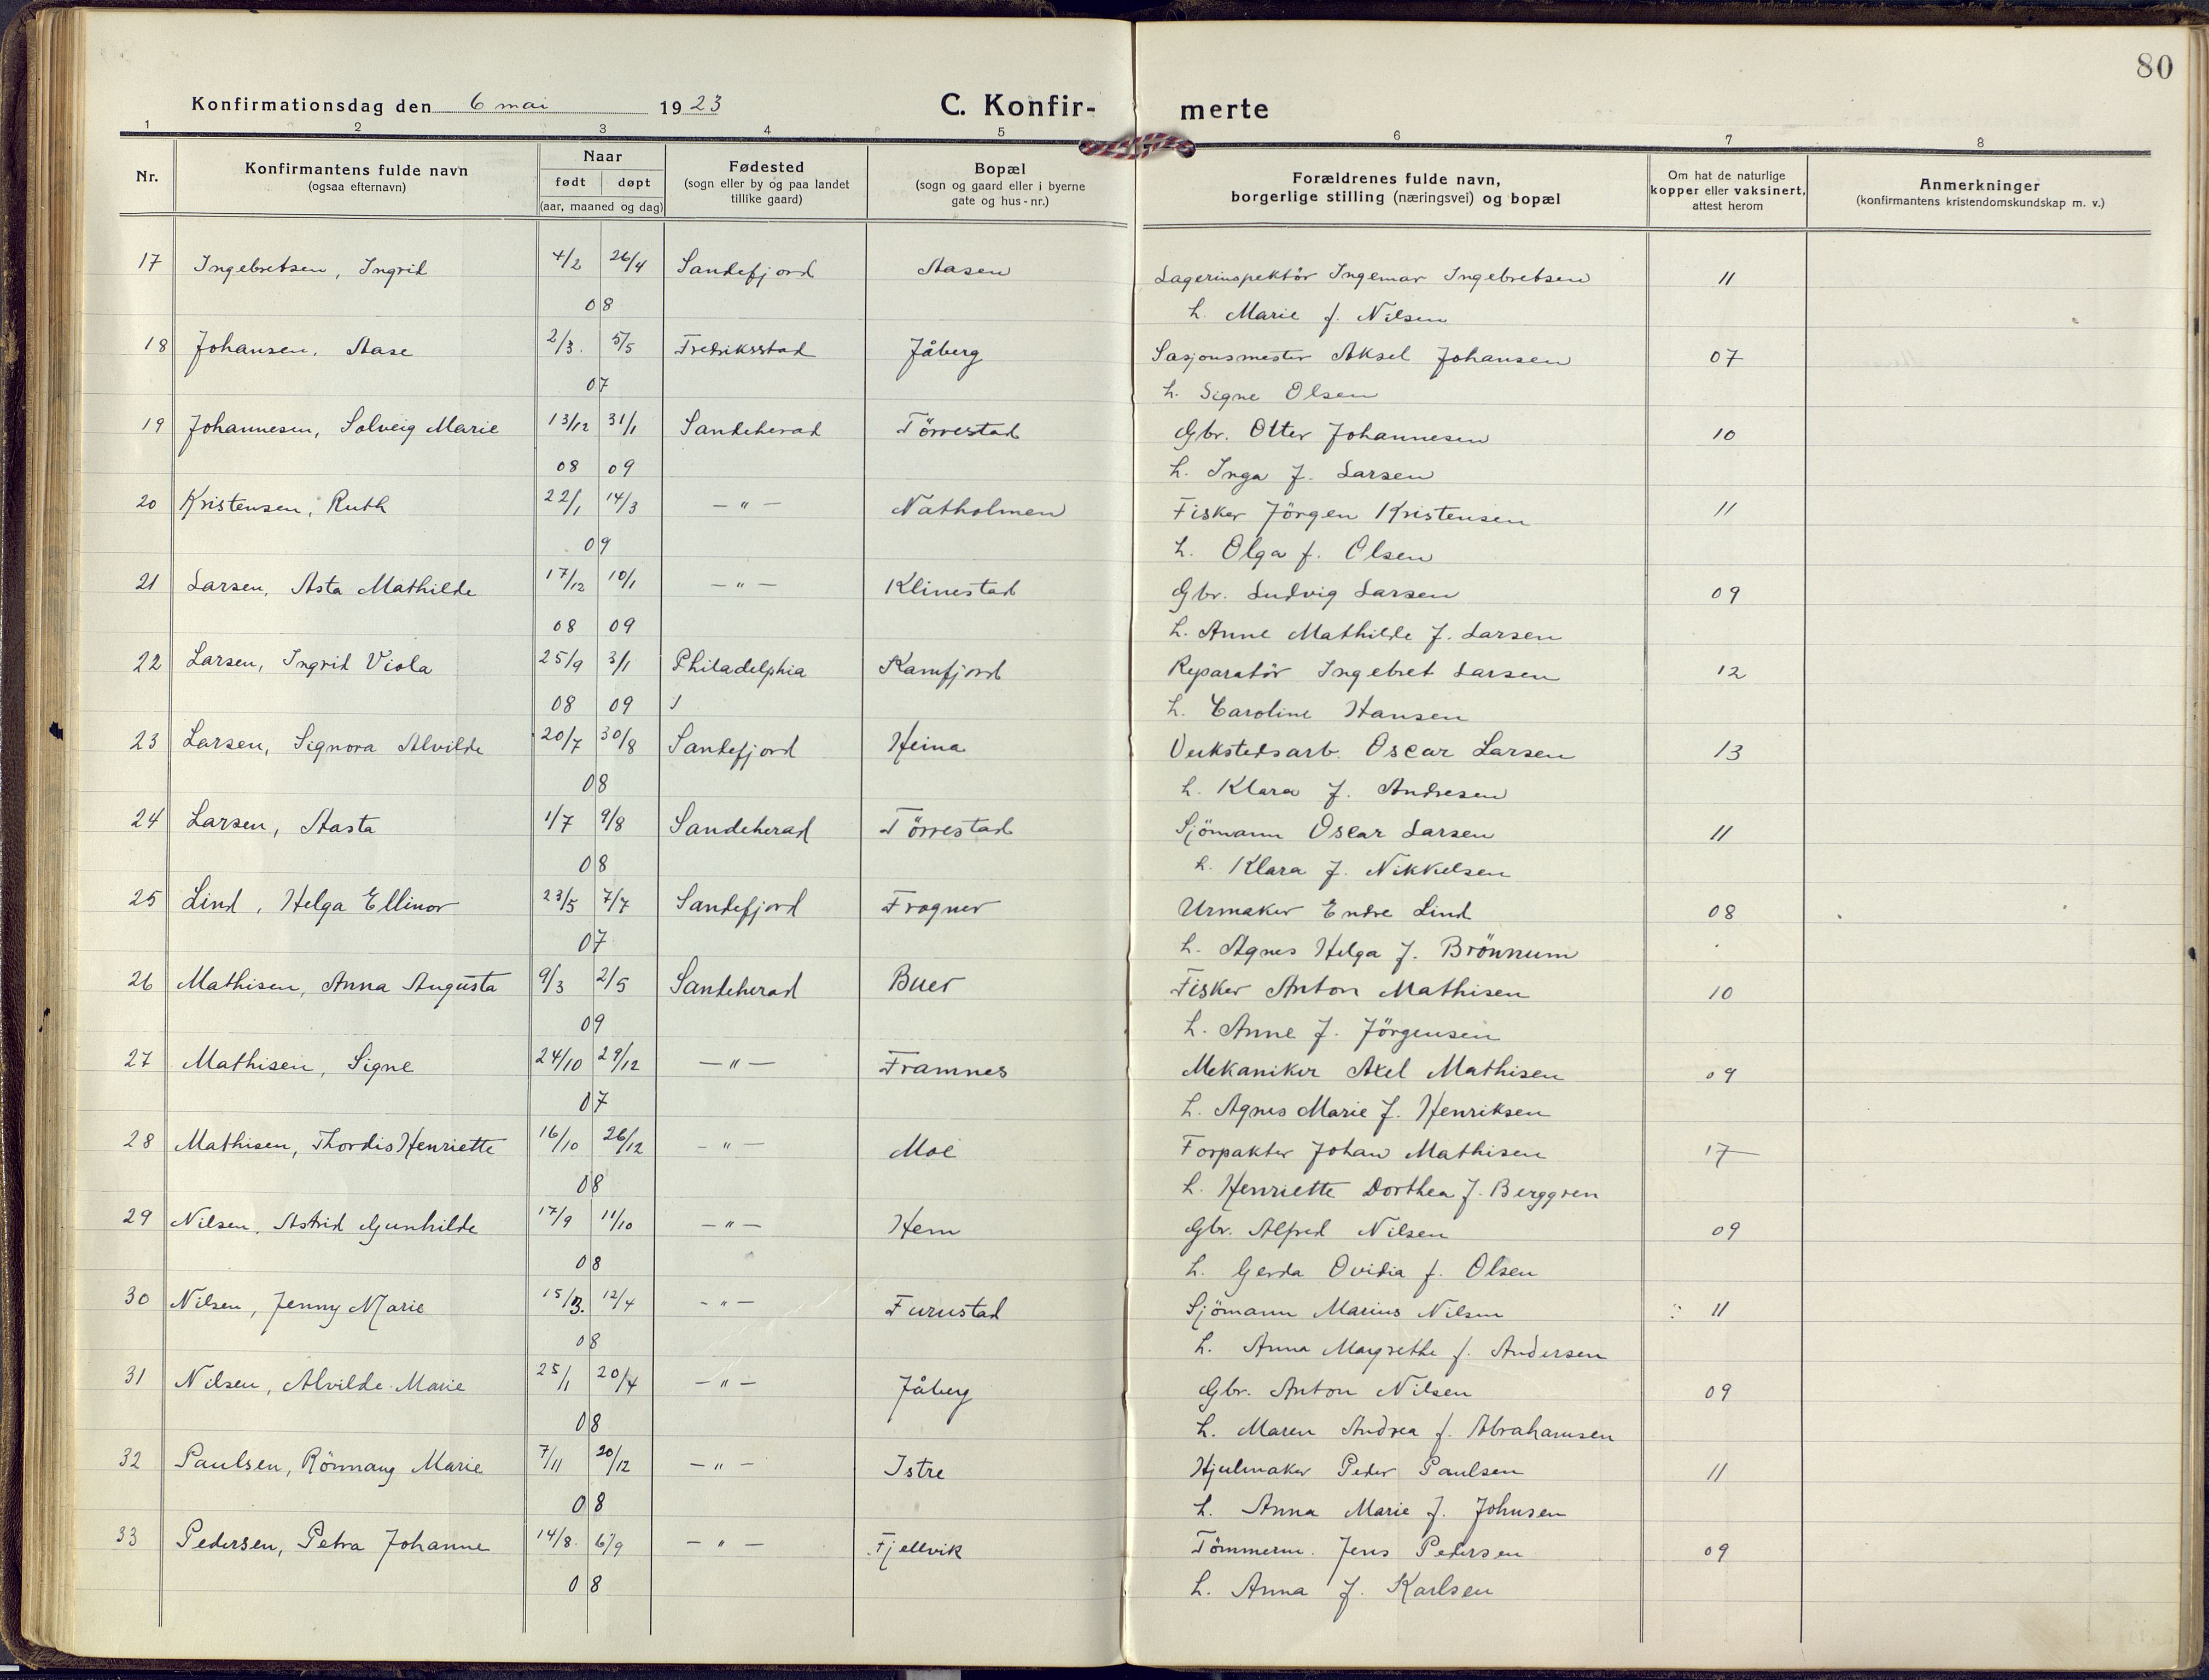 80
Konfirmationsdag den 6 mai 1923
C. Konfir- merte
1 2 3 4 5 6 7 8
Nr.
Konfirmantens fulde navn
(ogsaa efternavn)
Naar
født døpt
(aar, maaned og dag)
Fødested
(sogn eller by og paa landet
tillike gaard)
Bopæl
(sogn og gaard eller i byerne
gate og hus-nr.)
Forældrenes fulde navn,
borgerlige stilling (næringsvei) og bopæl
Om hat de naturlige
kopper eller vaksinert,
attest herom
Anmerkninger
(konfirmantens kristendomskundskap m. v.)
17 Ingebretsen, Ingrid 4/2 26/4 Sandefjord Aasen Lagerinspektör Ingemar Ingebretsen 11
08 h. Marie f. Nilsen
18 Johansen, Aase 2/3. 5/5 Fredriksstad Jåberg Sasjonsmester Aksel Johansen 07
07 h. Signe Olsen
19 Johannesen, Solveig Marie 13/12 31/1 Sandeherad Törrestad Gbr. Otter Johannesen 10
08 09 h. Inga f. Larsen
20 Kristensen, Ruth 22/1 14/3 — " — Natholmen Fisker Jörgen Kristensen 11
09 h. Olga f. Olsen
21 Larsen, Asta Mathilde 17/12 10/1 — " — Klinestad Gbr. Ludvig Larsen 09
08 09 h. Anne Mathilde f. Larsen
22 Larsen, Ingrid Viola 25/9 3/1 Philadelphia Kamfjord Reparatör Ingebret Larsen 12
08 09 h. Caroline Hansen
23 Larsen, Signora Alvilde 20/7 30/8 Sandefjord Heina Verkstedsarb. Oscar Larsen 13
08 h. Klara f. Andresen
24 Larsen, Aasta 1/7 9/8 Sandeherad Törrestad Sjömann Oscar Larsen 11
08 h. Klara f. Nikkelsen
25 Lind, Helga Ellinor 23/5 7/7 Sandefjord Frogner Urmaker Endre Lind 08
07 h. Agnes Helga f. Brönnum
26 Mathisen, Anna Augusta 9/3 2/5 Sandeherad Buer Fisker Anton Mathisen 10
09 h. Anne f. Jörgensen
27 Mathisen, Signe 24/10 29/12 — " — Framnes Mekaniker Axel Mathisen 09
07 h. Agnes Marie f. Henriksen
28 Mathisen, Thordis Henriette 16/10 26/12 — " — Moe Forpakter Johan Mathisen 17
08 h. Henriette Dorthea f. Berggren
29 Nilsen, Astrid Gunhilde 17/9 11/10 — " — Hem Gbr. Alfred Nilsen 09
08 h. Gerda Ovidia f. Olsen
30 Nilsen, Jenny Marie 15/3. 12/4 — " — Furustad Sjömann Marius Nilsen 11
08 h. Anna Margrethe f. Andersen
31 Nilsen, Alvilde Marie 25/1 20/4 — " — Jåberg Gbr. Anton Nilsen 09
08 h. Maren Andrea f. Abrahamsen
32 Paulsen, Rönnaug Marie 7/11 20/12 — " — Istre Hjulmaker Peder Paulsen 11
08 h. Anna Marie f. Johnsen
33 Pedersen, Petra Johanne 14/8. 6/9 — " — Fjellvik Tömmerm. Jens Pedersen 09
08 h. Anna f. Karlsen